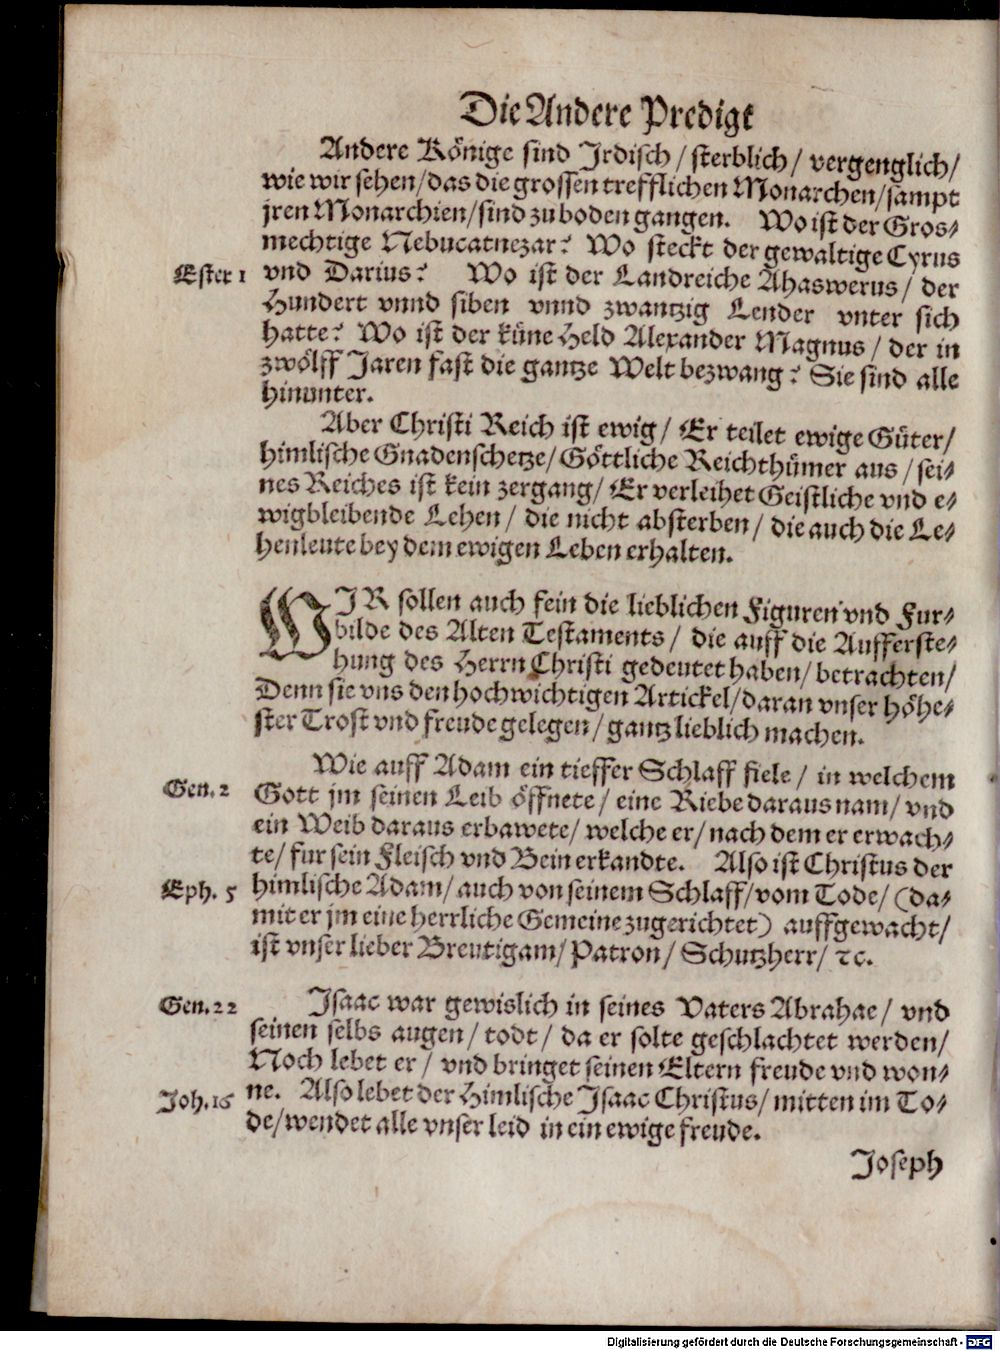 Die Andere Predigt
Andere Könige sind Jrdisch / sterblich / vergenglich /
wie wir sehen / das die grossen trefflichen Monarchen / sampt
jren Monarchien / sind zu boden gangen. Wo ist der Gros⸗
mechtige Nebucatnezar? Wo steckt der gewaltige Cyrus
Ester 1 vnd Darius? Wo ist der Landreiche Ahaswerus / der
Hundert vnnd siben vnnd zwantzig Lender vnter sich
hatte? Wo ist der küne Held Alexander Magnus / der in
zwölff Jaren fast die gantze Welt bezwang? Sie sind alle
hinunter.
Aber Christi Reich ist ewig / Er teilet ewige Güter /
himlische Gnadenschetze / Göttliche Reichthümer aus / sei⸗
nes Reiches ist kein zergang / Er verleihet Geistliche vnd e⸗
wigbleibende Lehen / die nicht absterben / die auch die Le⸗
henleute bey dem ewigen Leben erhalten.
WJR sollen auch fein die lieblichen Figuren vnd Fur⸗
bilde des Alten Testaments / die auff die Aufferste⸗
hung des Herrn Christi gedeutet haben / betrachten /
Denn sie vns den hochwichtigen Artickel / daran vnser höhe⸗
ster Trost vnd freude gelegen / gantz lieblich machen.
Wie auff Adam ein tieffer Schlaff fiele / in welchem
Gen. 2 Gott jm seinen Leib öffnete / eine Riebe daraus nam / vnd
ein Weib daraus erbawete / welche er / nach dem er erwach⸗
te / fur sein Fleisch vnd Bein erkandte. Also ist Christus der
Eph. 5 himlische Adam / auch von seinem Schlaff / vom Tode / (da⸗
mit er jm eine herrliche Gemeine zugerichtet) auffgewacht /
ist vnser lieber Breutigam / Patron / Schutzherr / ꝛc.
Gen. 22 Jsaac war gewislich in seines Vaters Abrahae / vnd
seinen selbs augen / todt / da er solte geschlachtet werden /
Noch lebet er / vnd bringet seinen Eltern freude vnd won⸗
Joh. 16 ne. Also lebet der Himlische Jsaac Christus / mitten im To⸗
de / wendet alle vnser leid in ein ewige freude.
Joseph
Digitalisierung gefördert durch die Deutsche Forschungsgemeinschaft - DFG